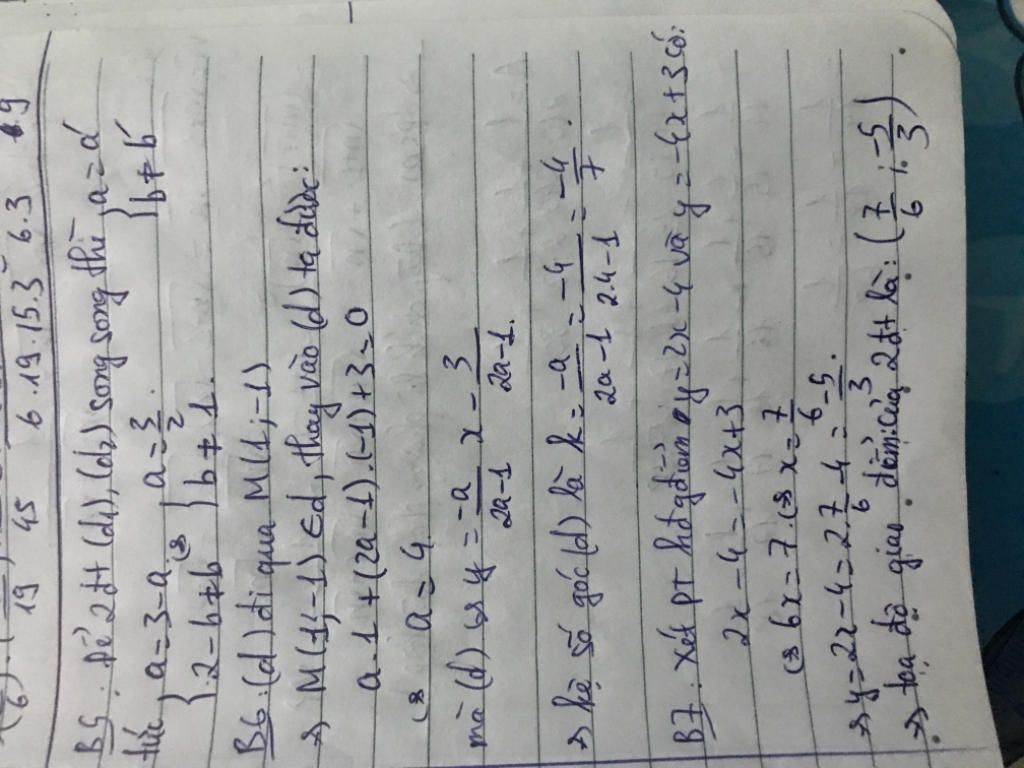 19 45 6.19.15.3 6.3 9
B5: Để 2 đt (d₁), (d₂) song song thì { a = a'
b ≠ b'
tức { a = 3 - a (=) { a = 3/2.
2 - b ≠ b b ≠ 1.
B6: (d) đi qua M(1;-1)
=) M(1;-1) ∈ d, thay vào (d) ta được:
a.1 + (2a-1).(-1) + 3 = 0
(=) a = 4
mà (d) (=) y = -a/2a-1 x - 3/2a-1.
=) hệ số góc (d) là k = -a/2a-1 = -4/2.4-1 = -4/7.
B7: Xét pt hđgđiểm y = 2x - 4 và y = -4x + 3 có:
2x - 4 = -4x + 3
(=) 6x = 7. (=) x = 7/6
=) y = 2x - 4 = 2.7/6 - 4 = -5/3.
=) tọa độ giao điểm của 2 đt là: (7/6; -5/3).